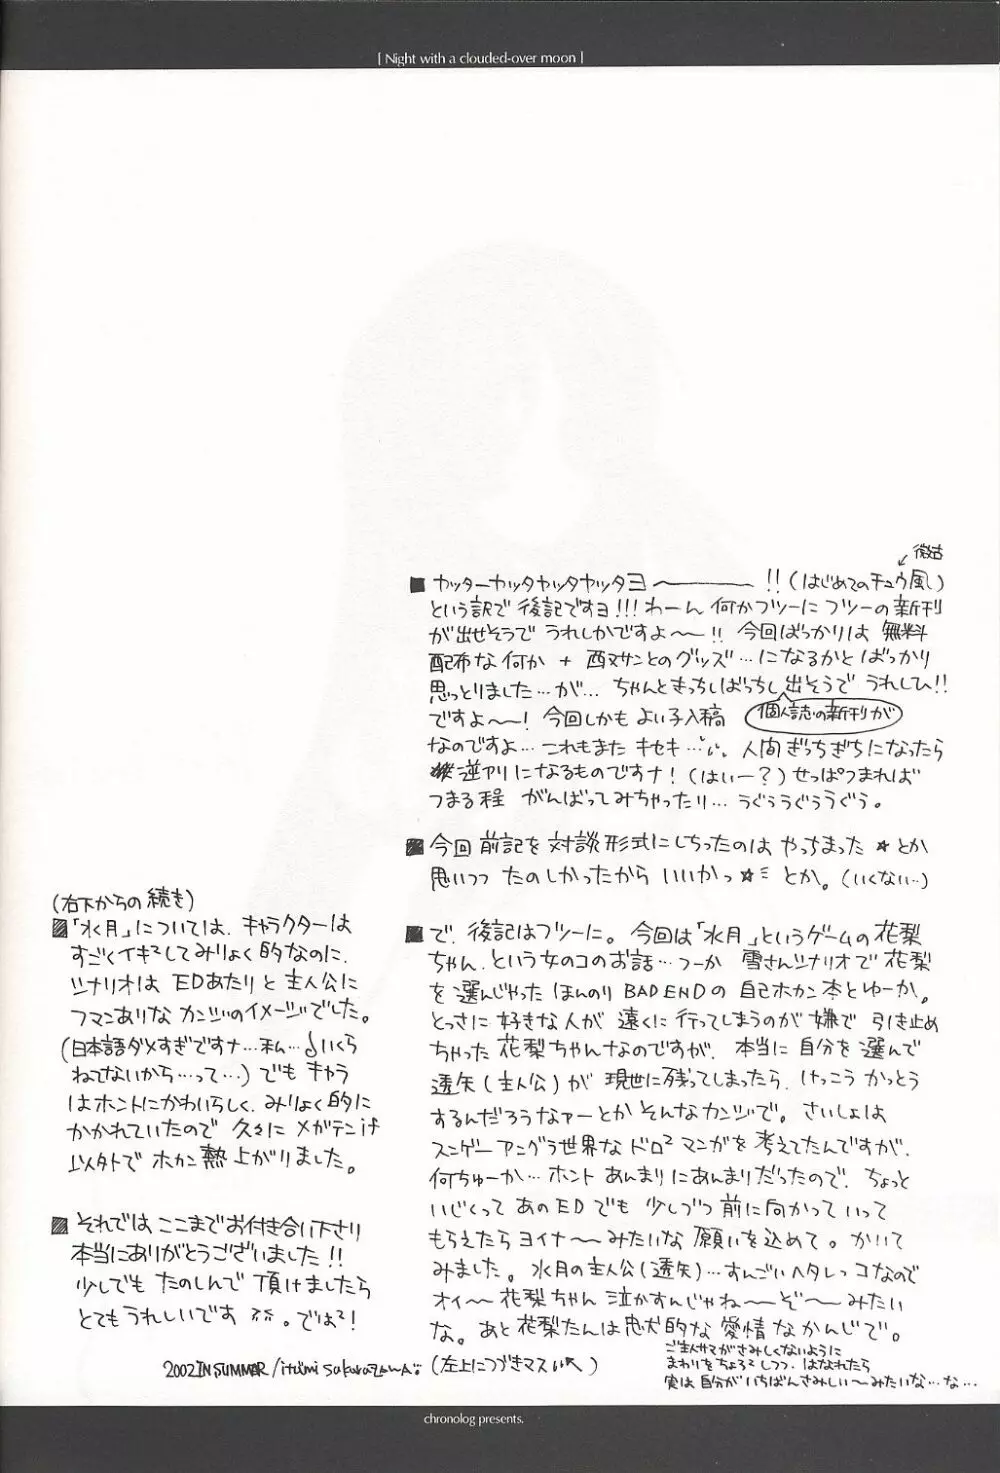 [ Night with a clouded-over moon ]
微古
■ ヤッターヤッタヤッタヤッタヨ――――!!(はじめてのチュウ風)
という訳で 後記ですヨ!!! わーん 何かフツーに フツーの新刊
が出せそうで うれしかですよ〜〜!! 今回ばっかりは 無料
配布な何か + 酉又サンとのグッズ…になるかと ばっかり
思っとりました…が… ちゃんときっちしばっちし 出そうで うれしひ!!
個人誌の新刊が
ですよ〜〜! 今回しかも よい子入稿
なのですよ… これもまた キセキ… 人間 ぎっちぎちになったら
逆アリになるものですナ!(はぃー?)せっぱつまれば
つまる程 がんばってみちゃったり… うぐぅうぐぅうぐぅ。
■ 今回 前記を 対談形式にしちったのは やっちまった★とか
思いつつ たのしかったから いいかっ★ミ とか。(いくない…)
■ で、後記はフツーに。今回は「水月」というゲームの花梨
ちゃん、という女のコのお話…つーか 雪さんシナリオで 花梨
を選んじゃった ほんのり BAD ENDの 自己ホカン本とゆーか。
とっさに 好きな人が 遠くに行ってしまうのが 嫌で 引き止め
ちゃった 花梨ちゃんなのですが、本当に 自分を選んで
透矢(主人公)が 現世に残ってしまったら、けっこう かっとう
するんだろうなァーとか そんなカンジで。さいしょは
スンゲー アングラ世界な ドロ²マンガを 考えてたんですが、
何ちゅーか… ホント あんまりにあんまりだったので、ちょっと
いじくって あのEDでも 少しづつ 前に向かって いって
もらえたら ヨイナ〜〜みたいな 願いを込めて。かいて
みました。水月の主人公(透矢)…すんごいヘタレっコなので
オイ〜〜花梨ちゃん 泣かすんじゃね〜〜ぞ〜〜みたい
な。あと 花梨たんは 忠犬的な 愛情なかんじで。
ご主人サマがさみしくないように
まわりをちょろ²しつつ、はなれたら
実は自分がいちばんさみしい〜みたいな…な…
(左上につづきマス)
(右下からの続き)
■「水月」については、キャラクターは
すごくイキ²してみりょく的なのに、
シナリオは EDあたりと主人公に
フマンありな カンジのイメージでした。
(日本語ダメすぎですナ…私…いくら
ねてないから…って…)でも キャラ
はホントにかわいらしく、みりょく的に
かかれていたので 久々に メガテンif
以外で ホカン熱 上がりました。
■ それでは ここまでお付き合い下さり
本当にありがとうございました!!
少しでも たのしんで 頂けましたら
とてもうれしいです。では²!
2002 IN SUMMER/itsumi sakurazawa
chronolog presents.